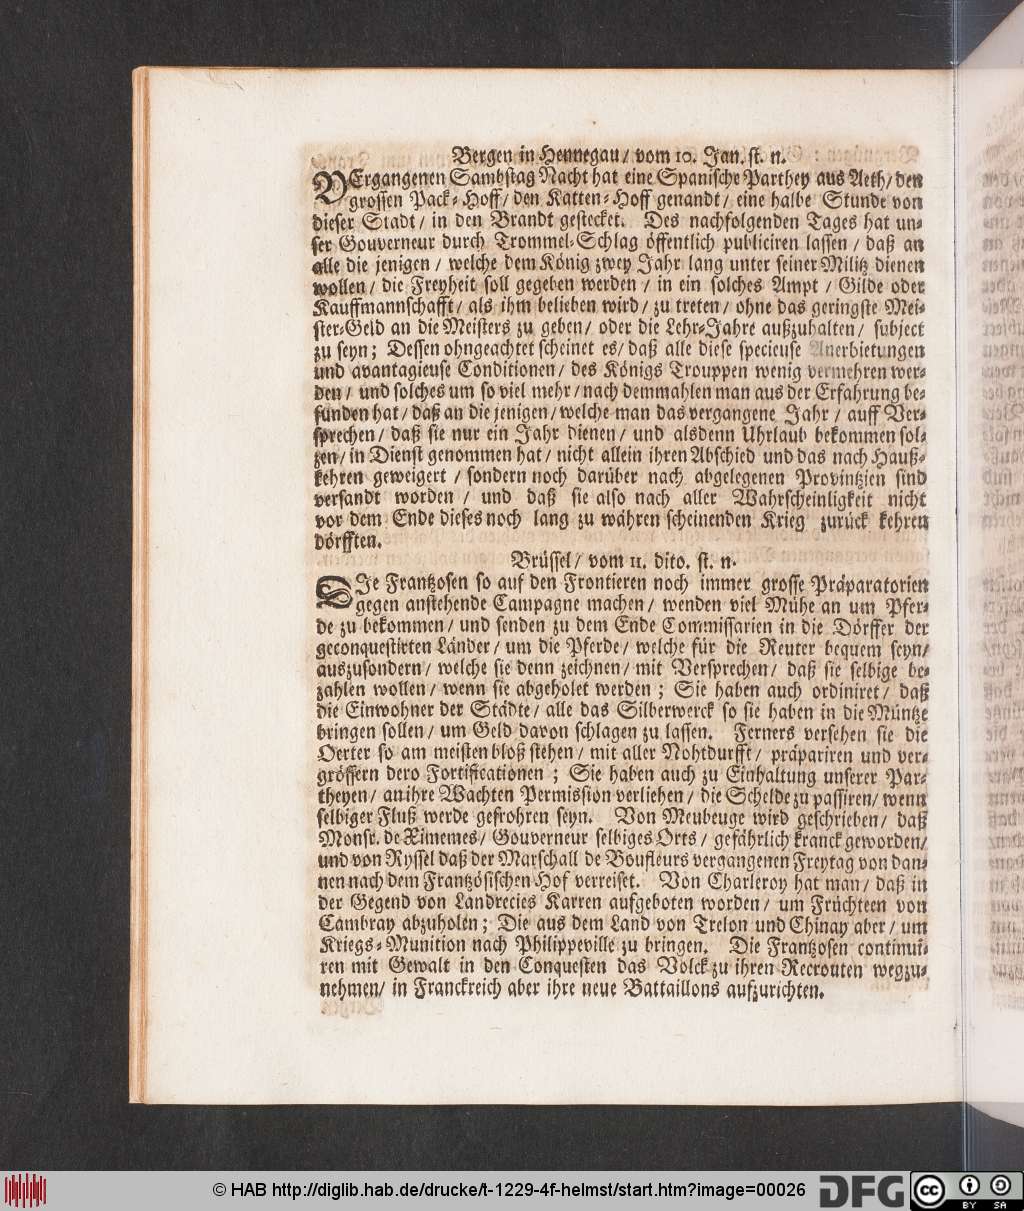 Bergen in Hennegau / vom 10. Jan. st. n.
VErgangenen Sambstag Nacht hat eine Spanische Parthey aus Aeth / den
grossen Pack-Hoff / den Katten-Hoff genandt / eine halbe Stunde von
dieser Stadt / in den Brandt gestecket. Des nachfolgenden Tages hat un-
ser Gouverneur durch Trommel-Schlag öffentlich publiciren lassen / daß an
alle die jenigen / welche dem König zwey Jahr lang unter seiner Militz dienen
wollen / die Freyheit soll gegeben werden / in ein solches Ampt / Gilde oder
Kauffmannschafft / als ihm belieben wird / zu treten / ohne das geringste Mei-
ster-Geld an die Meisters zu geben / oder die Lehr-Jahre außzuhalten / subject
zu seyn; Dessen ohngeachtet scheinet es / daß alle diese specieuse Anerbietungen
und avantagieuse Conditionen / des Königs Trouppen wenig vermehren wer-
den / und solches um so viel mehr / nach demmahlen man aus der Erfahrung be-
funden hat / daß an die jenigen / welche man das vergangene Jahr / auff Ver-
sprechen / daß sie nur ein Jahr dienen / und alsdenn Uhrlaub bekommen sol-
zen / in Dienst genommen hat / nicht allein ihren Abschied und das nach Hauß-
kehren geweigert / sondern noch darüber nach abgelegenen Provintzien sind
versandt worden / und daß sie also nach aller Wahrscheinligkeit nicht
vor dem Ende dieses noch lang zu währen scheinenden Krieg zurück kehren
dörfften.
Brüssel / vom 11. dito. st. n.
DIe Frantzosen so auf den Frontieren noch immer grosse Präparatorien
gegen anstehende Campagne machen / wenden viel Mühe an um Pfer-
de zu bekommen / und senden zu dem Ende Commissarien in die Dörffer der
geconquestirten Länder / um die Pferde / welche für die Reuter bequem seyn /
auszusondern / welche sie denn zeichnen / mit Versprechen / daß sie selbige be-
zahlen wollen / wenn sie abgeholet werden ; Sie haben auch ordiniret / daß
die Einwohner der Städte / alle das Silberwerck so sie haben in die Müntze
bringen sollen / um Geld davon schlagen zu lassen. Ferners versehen sie die
Oerter so am meisten bloß stehen / mit aller Nohtdurfft / präpariren und ver-
grössern dero Fortificationen ; Sie haben auch zu Einhaltung unserer Par-
theyen / an ihre Wachten Permission verliehen / die Schelde zu passiren / wenn
selbiger Fluß werde gefrohren seyn. Von Meubeuge wird geschrieben / daß
Monsr. de Ximemes / Gouverneur selbiges Orts / gefährlich kranck geworden /
und von Ryssel daß der Marschall de Boufleurs vergangenen Freytag von dan-
nen nach dem Frantzösischen Hof verreiset. Von Charleroy hat man / daß in
der Gegend von Landrecies Karren aufgeboten worden / um Früchteen von
Cambray abzuholen ; Die aus dem Land von Trelon und Chinay aber / um
Kriegs-Munition nach Philippeville zu bringen. Die Frantzosen continui-
ren mit Gewalt in den Conquesten das Volck zu ihren Recrouten wegzu-
nehmen / in Franckreich aber ihre neue Battaillons aufzurichten.
© HAB http://diglib.hab.de/drucke/t-1229-4f-helmst/start.htm?image=00026
DFG
cc BY SA